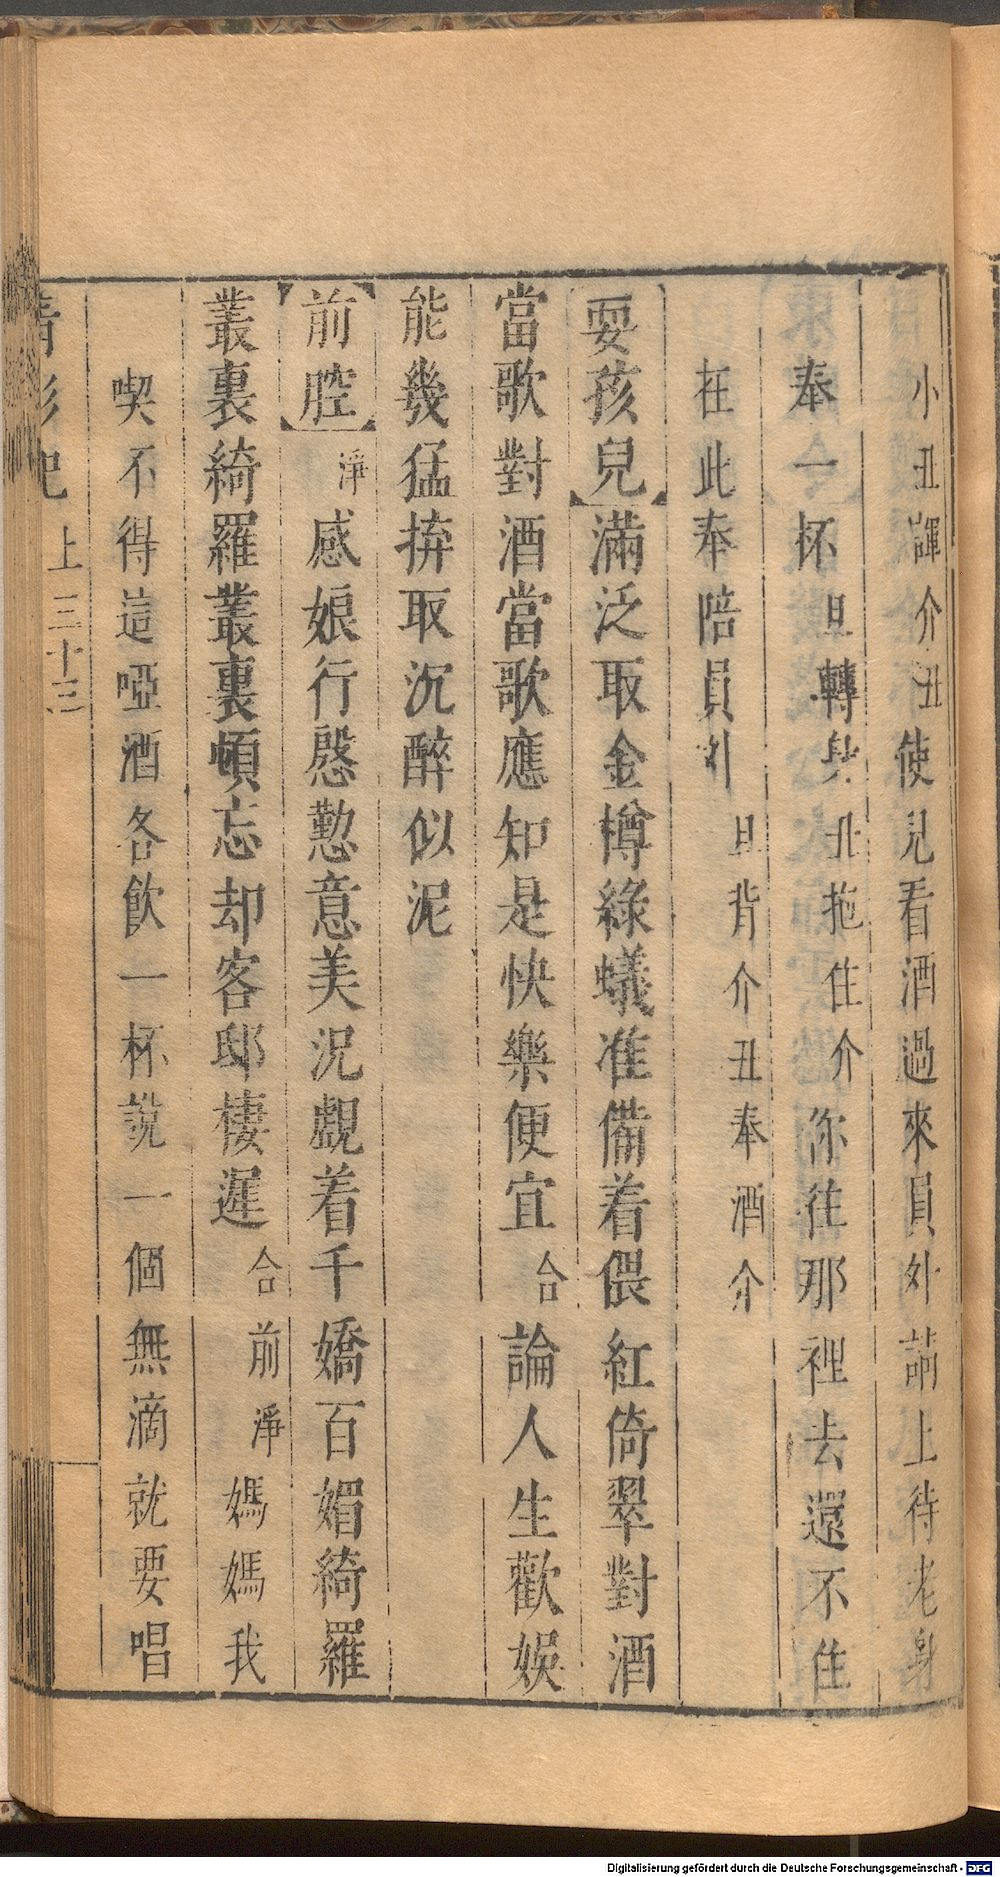 小丑諢介丑使兒看酒過來員外請上待老身
奉一杯旦轉身丑拖住介你往那裡去還不住
在此奉陪員外旦背介丑奉酒介
耍孩兒滿泛取金樽綠蟻准備着偎紅倚翠對酒
當歌對酒當歌應知是快樂便宜合論人生歡娛
能幾猛拚取沉醉似泥
前腔淨感娘行慇懃意美況覷着千嬌百媚綺羅
叢裏綺羅叢裏頓忘却客邸棲遲合前淨媽媽我
喫不得這啞酒各飲一杯說一個無滴就要唱
上三十三
Digitalisierung gefördert durch die Deutsche Forschungsgemeinschaft - DFG